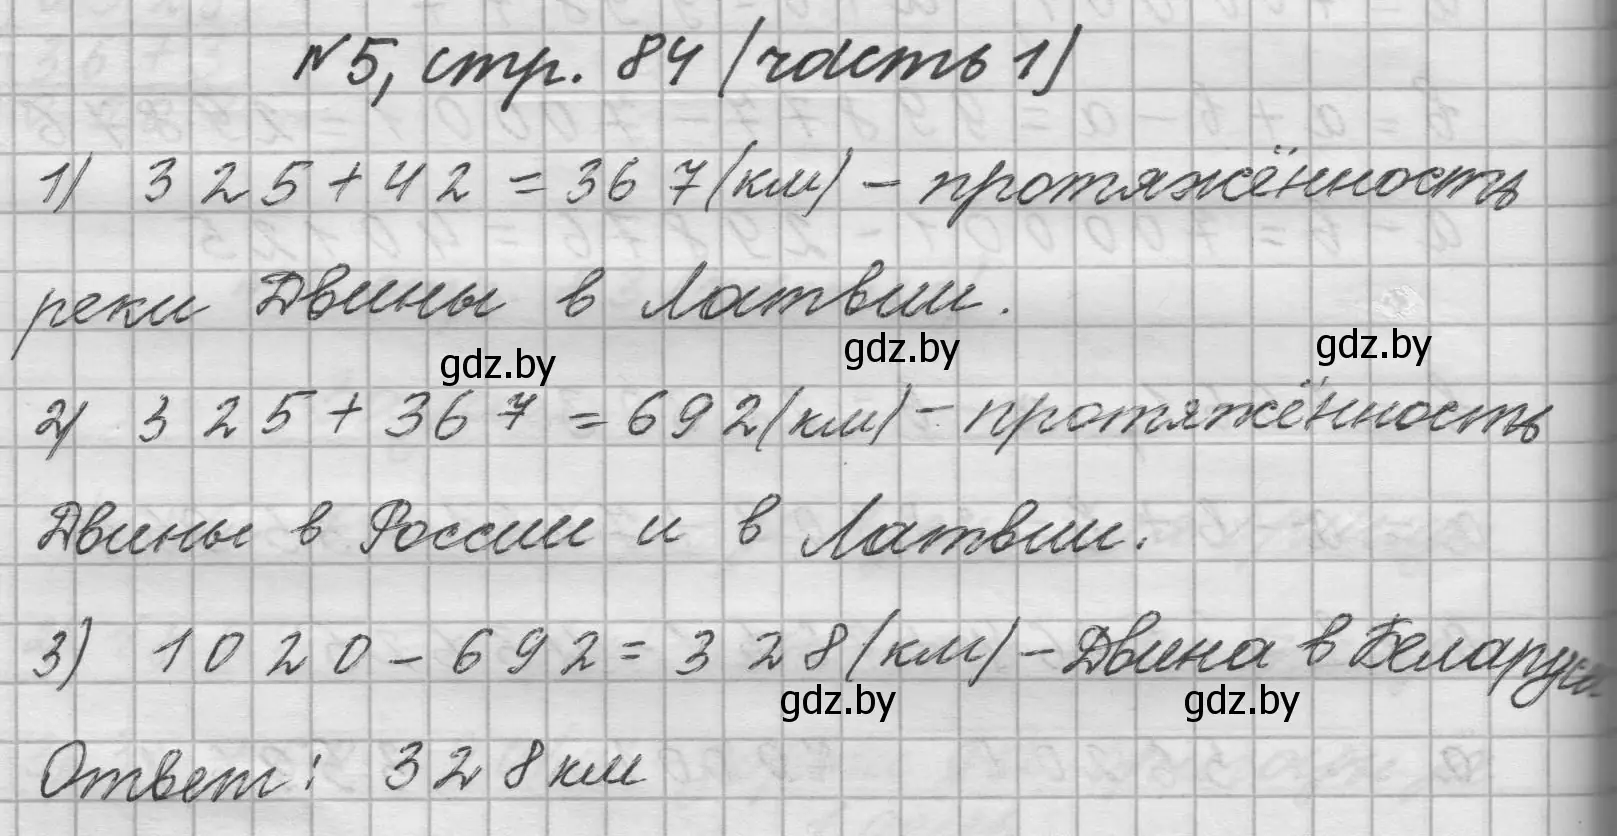 №5, стр. 84 (часть 1)
1) 325+42=367(км) – протяжённость
реки Двины в Латвии.
gdz.by gdz.by gdz.by
2) 325+367=692(км) – протяжённость
Двины в России и в Латвии.
3) 1020–692=328(км) – Двина в Беларуси
gdz.by gdz.by
Ответ: 328км